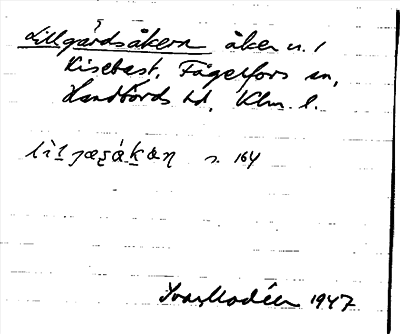 Lillgärdsåkern åker n. 1
Kisebast, Fågelfors sn,
Handbörds hd, Klm. l.
s. 164
Ivar Modéer 1947